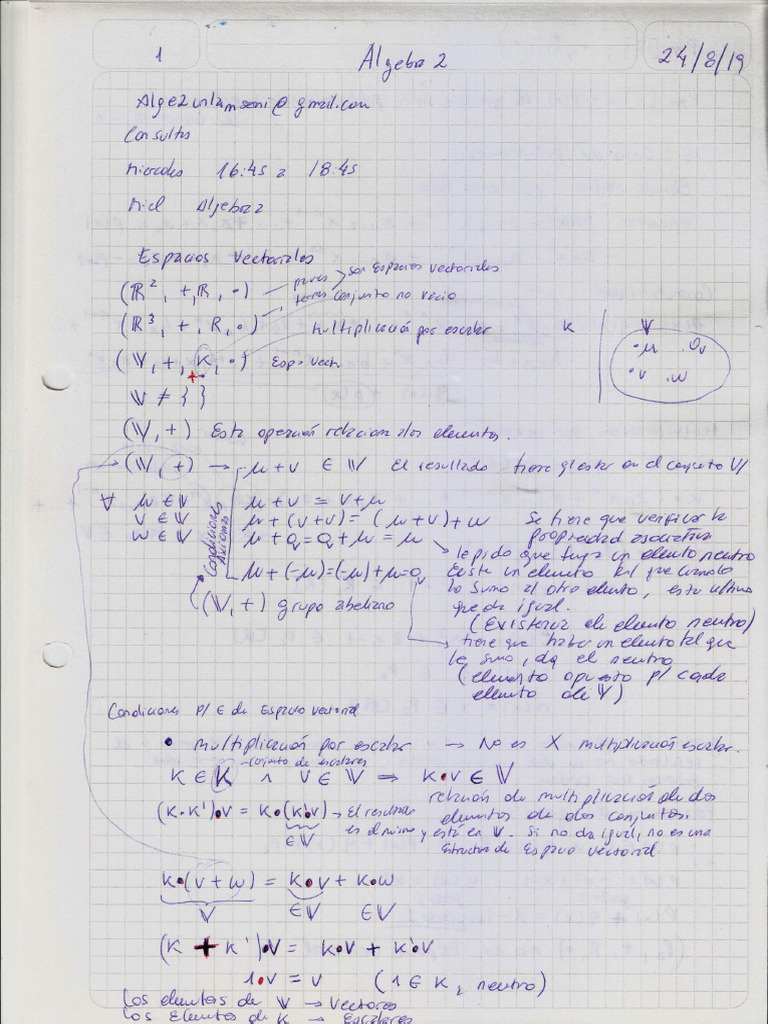 1
Algebra 2
24/8/19
Alge2unlamsemi@gmail.com
Consultas
Miercoles 16:45 a 18:45
Miel Algebra 2
Espacios Vectoriales
(ℝ², +, ℝ, •) pares son Espacios vectoriales
(ℝ³, +, ℝ, •) ternas conjunto no vacio
multiplicación por escalar
K 𝕍
•μ .0v
•v .w
(𝕍, +, K, •) Esp. Vect.
𝕍 ≠ { }
(𝕍, +) Esta operación relaciona dos elementos.
(𝕍, +) → μ+v ∈ 𝕍 El resultado tiene q' estar en el conjunto 𝕍
∀ μ ∈ 𝕍
v ∈ 𝕍
w ∈ 𝕍
Condiciones Axiomas
μ+v = v+μ
μ+(v+v) = (μ+v)+w Se tiene que verificar la propiedad asociativa
μ+0v = 0v+μ = μ
le pido que tenga un elemento neutro
Existe un elemento tal que cuando
lo sumo al otro elemento, este ultimo
queda igual.
(Existencia de elemento neutro)
μ+(-μ) = (-μ)+μ = 0v
tiene que haber un elemento tal que
lo sumo, da el neutro
(elemento opuesto p/ cada
elemento de 𝕍)
(𝕍, +) grupo abeliano
Condiciones p/ E de Espacio vectorial
• multiplicación por escalar → No es X multiplicación escalar.
conjunto de escalares
K ∈ K ∧ v ∈ 𝕍 ⇒ K•v ∈ 𝕍
relación de multiplicación de dos
elementos de dos conjuntos.
(K•K')•v = K•(K'•v) → El resultado
es el mismo y está en 𝕍. Si no da igual, no es una
Estructura de Espacio vectorial
∈𝕍
K•(v+w) = K•v + K•w
𝕍 ∈𝕍 ∈𝕍
(K + K')•v = K•v + K'•v
1•v = v (1 ∈ K, neutro)
Los elementos de 𝕍 → Vectores
Los Elementos de K → Escalares